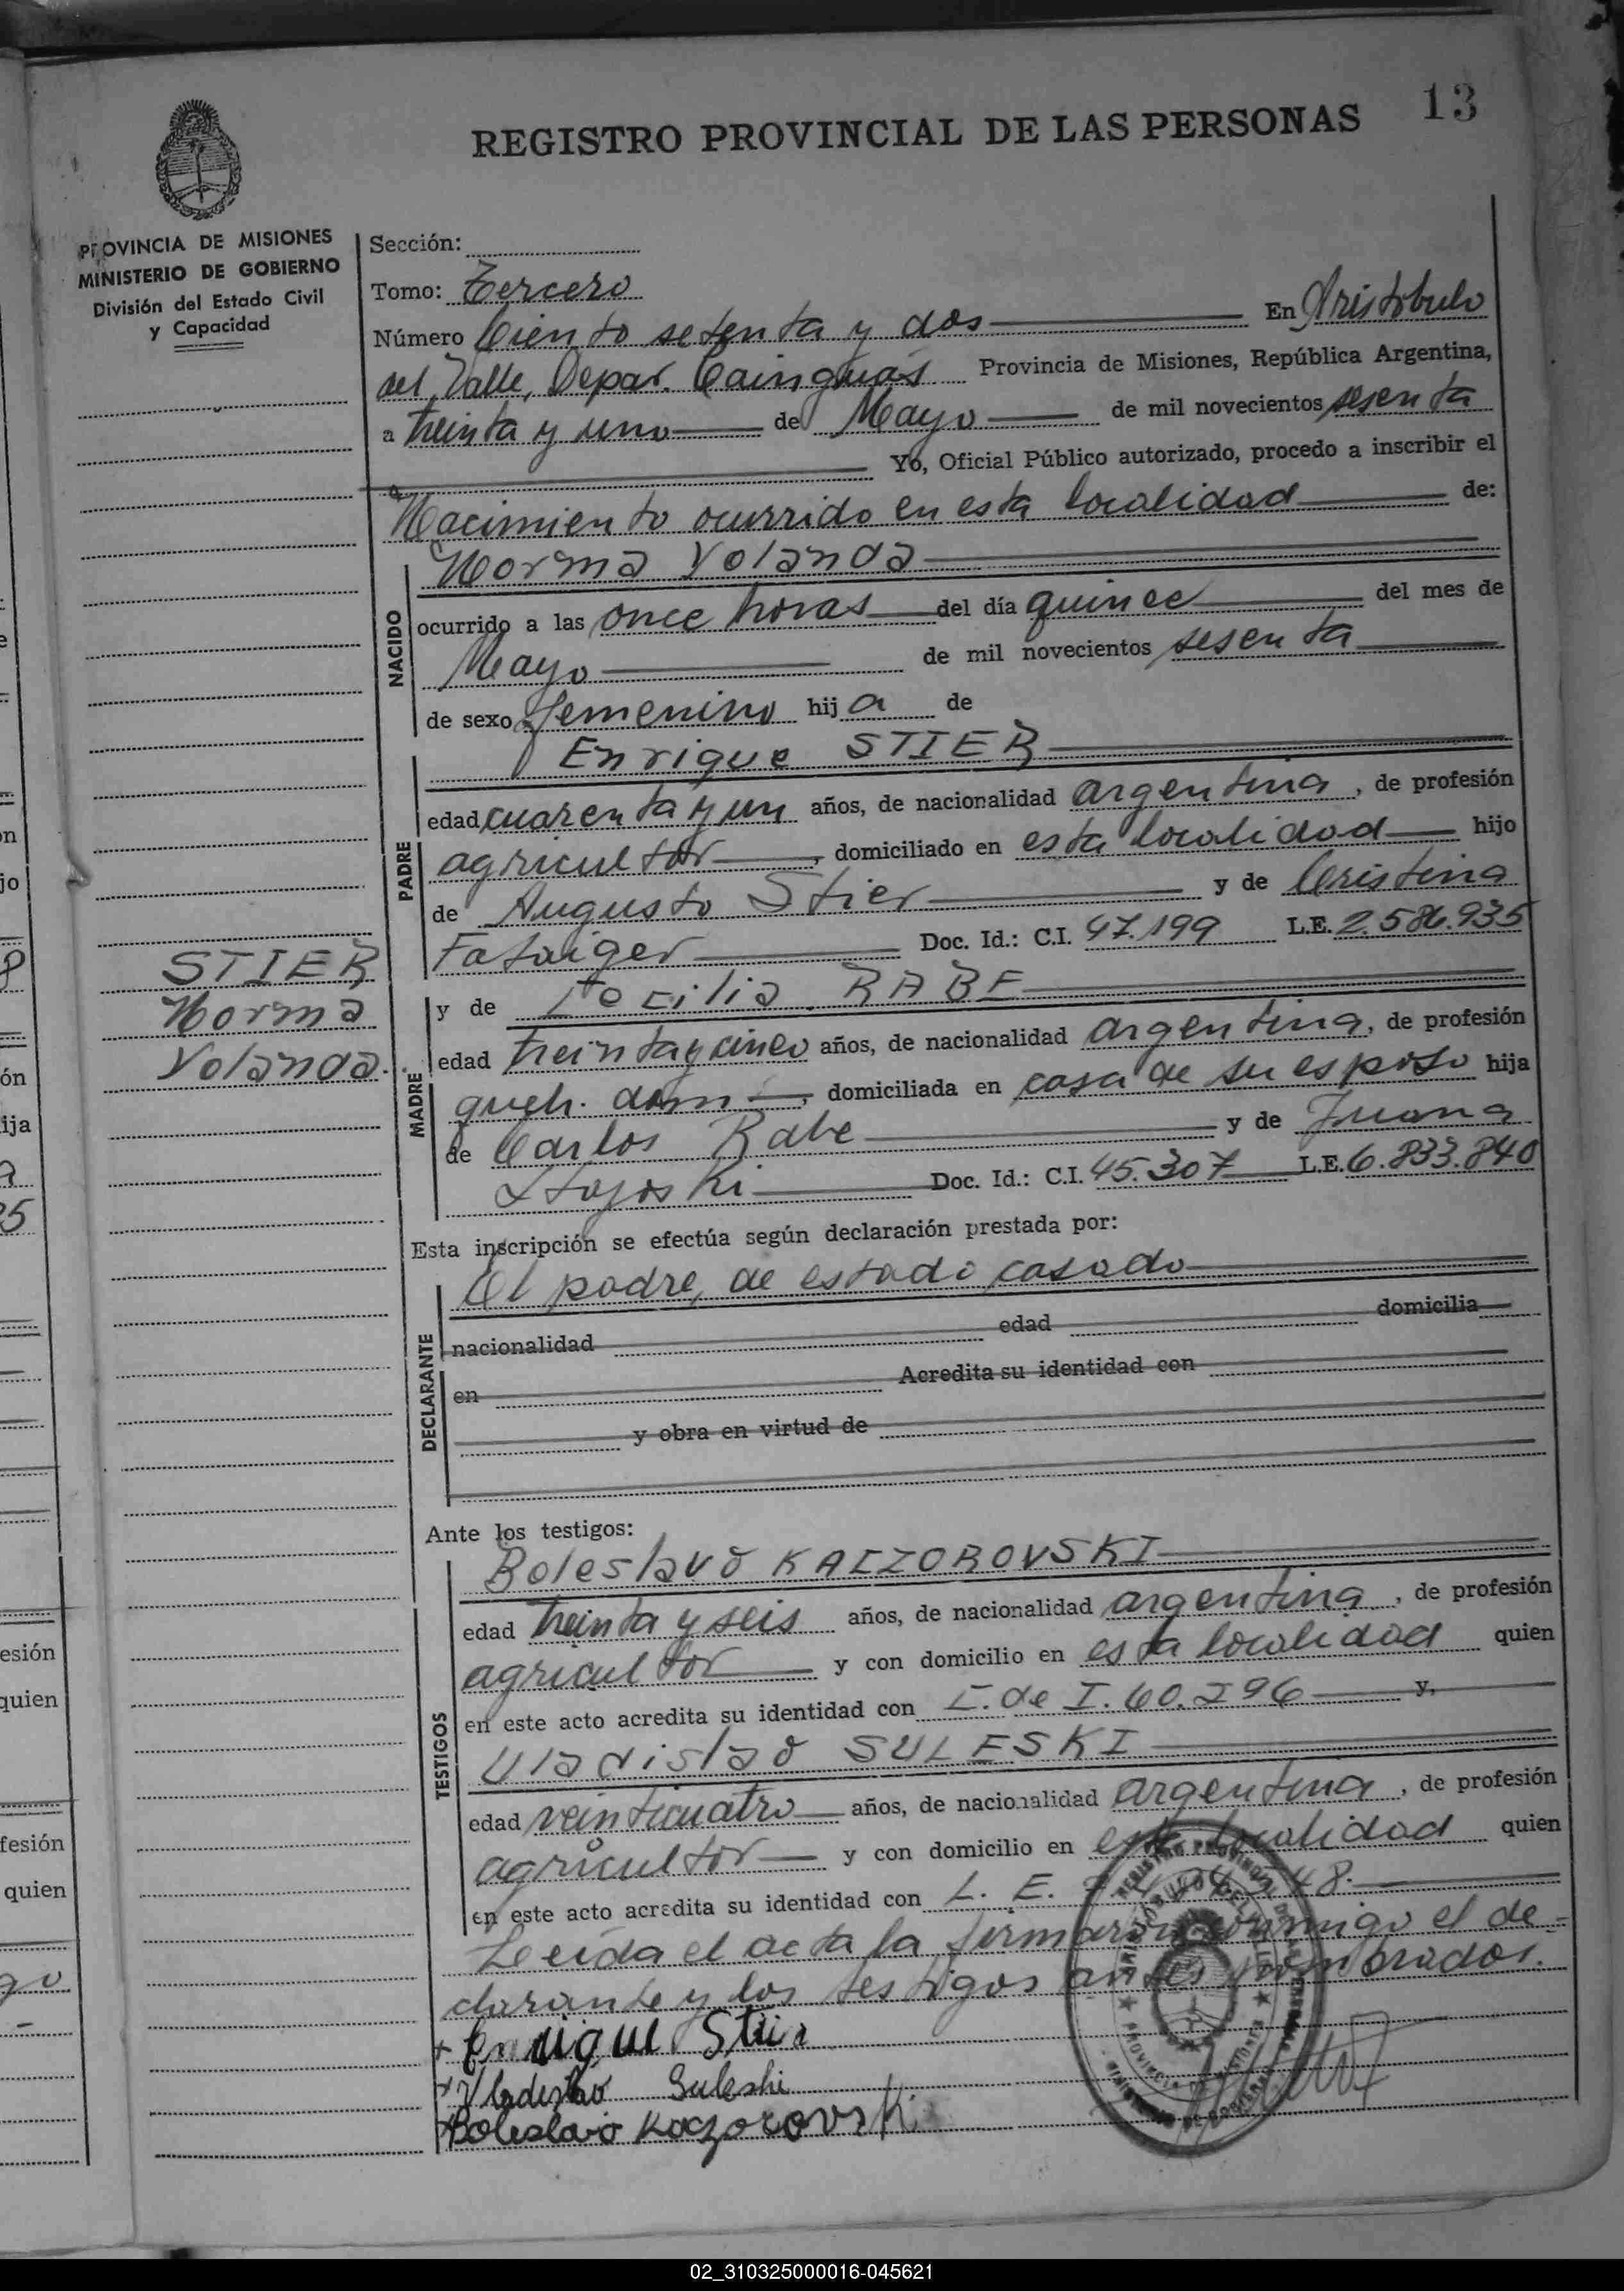 13
REGISTRO PROVINCIAL DE LAS PERSONAS
PROVINCIA DE MISIONES
MINISTERIO DE GOBIERNO
División del Estado Civil
y Capacidad
Sección:
Tomo: Tercero
Número Ciento setenta y dos En Aristóbulo
del Valle, Depar. Cainguás Provincia de Misiones, República Argentina,
a treinta y uno de Mayo de mil novecientos sesenta
Yo, Oficial Público autorizado, procedo a inscribir el
Nacimiento ocurrido en esta localidad de:
NACIDO
Norma Yolanda
ocurrido a las once horas del día quince del mes de
Mayo de mil novecientos sesenta
de sexo femenino hija de
PADRE
Enrique STIER
edad cuarenta y un años, de nacionalidad argentina, de profesión
agricultor, domiciliado en esta localidad hijo
de Augusto Stier y de Cristina
Doc. Id.: C.I. 47.199 L.E. 2.586.935
STIER
Norma
Yolanda.
MADRE
y de Cecilia RABE
edad treinta y cinco años, de nacionalidad argentina, de profesión
queh. dom., domiciliada en casa de su esposo hija
de Carlos Rabe y de Juana
Doc. Id.: C.I. 45.307 L.E. 6.833.840
Esta inscripción se efectúa según declaración prestada por:
DECLARANTE
El padre, de estado casado
nacionalidad edad domicilia
en Acredita su identidad con
y obra en virtud de
Ante los testigos:
TESTIGOS
Boleslavo KACZOROVSKI
edad treinta y seis años, de nacionalidad argentina, de profesión
agricultor y con domicilio en esta localidad quien
en este acto acredita su identidad con C. de I. 60.296 y,
Uladislao SULESKI
edad veinticuatro años, de nacionalidad argentina, de profesión
agricultor y con domicilio en esta localidad quien
en este acto acredita su identidad con L. E.
Leída el acta la firmaron conmigo el de-
clarante y los testigos antes nombrados.
+ Enrique Stier
+ Vladislao Suleski
+ Boleslavo Kaczorovski
02_310325000016-045621